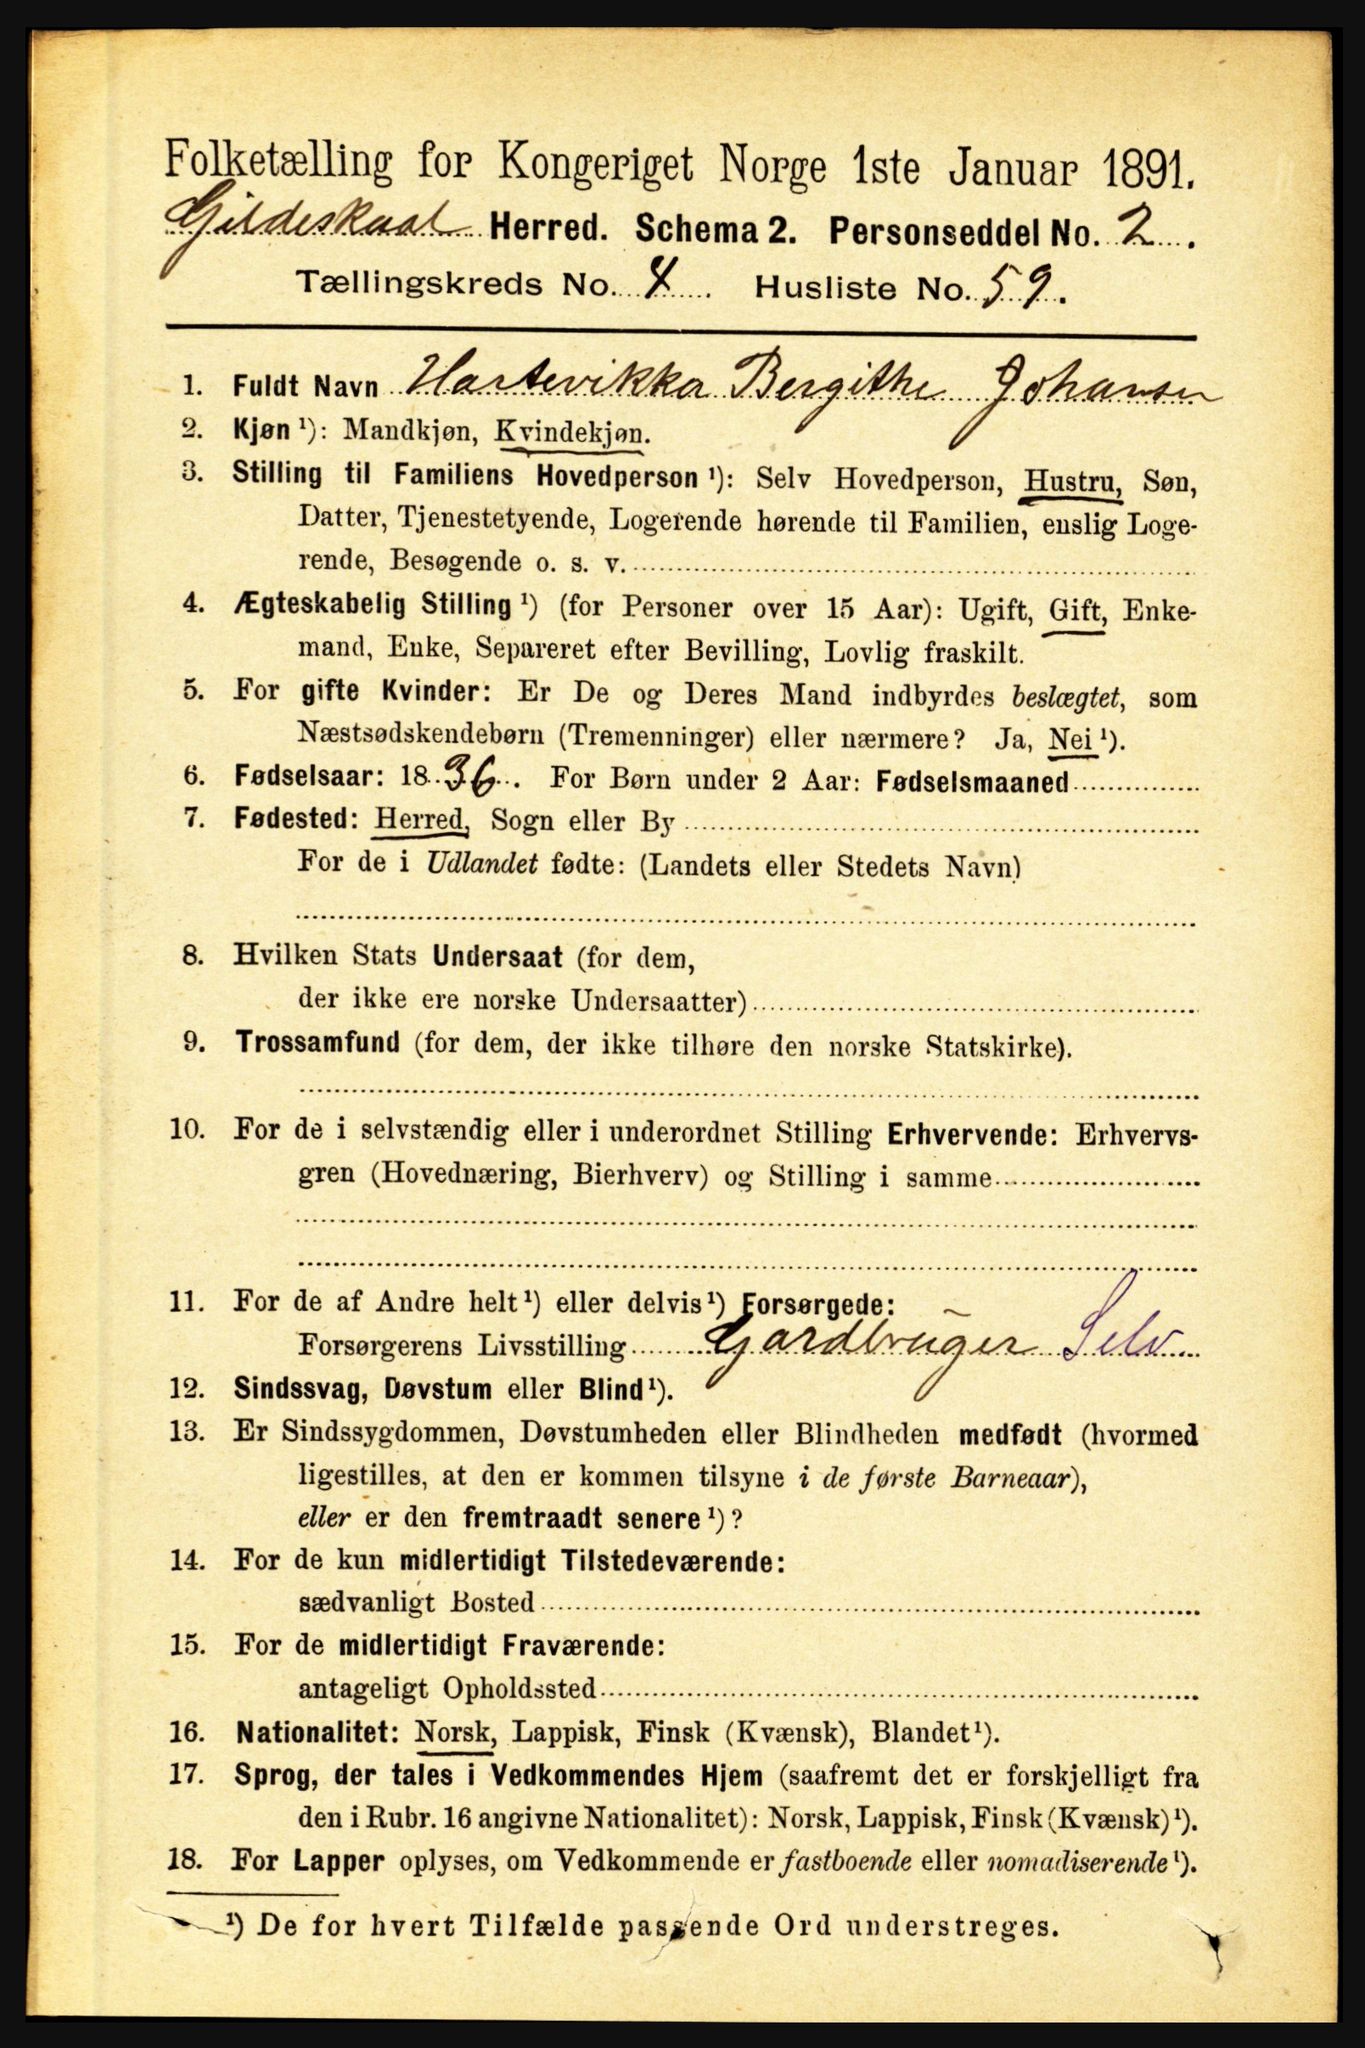 Folketælling for Kongeriget Norge 1ste Januar 1891.
Gildeskaal Herred. Schema 2. Personseddel No. 2.
Tællingskreds No. 4. Husliste No. 59.
1. Fuldt Navn Hartevikka Bergithe Johansen
2. Kjøn ¹): Mandkjøn, Kvindekjøn.
3. Stilling til Familiens Hovedperson ¹): Selv Hovedperson, Hustru, Søn,
Datter, Tjenestetyende, Logerende hørende til Familien, enslig Loge-
rende, Besøgende o. s. v.
4. Ægteskabelig Stilling ¹) (for Personer over 15 Aar): Ugift, Gift, Enke-
mand, Enke, Separeret efter Bevilling, Lovlig fraskilt.
5. For gifte Kvinder: Er De og Deres Mand indbyrdes beslægtet, som
Næstsødskendebørn (Tremenninger) eller nærmere? Ja, Nei ¹).
6. Fødselsaar: 1836. For Børn under 2 Aar: Fødselsmaaned
7. Fødested: Herred, Sogn eller By
For de i Udlandet fødte: (Landets eller Stedets Navn)
8. Hvilken Stats Undersaat (for dem,
der ikke ere norske Undersaatter)
9. Trossamfund (for dem, der ikke tilhøre den norske Statskirke).
10. For de i selvstændig eller i underordnet Stilling Erhvervende: Erhvervs-
gren (Hovednæring, Bierhverv) og Stilling i samme
11. For de af Andre helt ¹) eller delvis ¹) Forsørgede:
Forsørgerens Livsstilling Gardbruger Selv
12. Sindssvag, Døvstum eller Blind ¹).
13. Er Sindssygdommen, Døvstumheden eller Blindheden medfødt (hvormed
ligestilles, at den er kommen tilsyne i de første Barneaar),
eller er den fremtraadt senere ¹)?
14. For de kun midlertidigt Tilstedeværende:
sædvanligt Bosted
15. For de midlertidigt Fraværende:
antageligt Opholdssted
16. Nationalitet: Norsk, Lappisk, Finsk (Kvænsk), Blandet ¹).
17. Sprog, der tales i Vedkommendes Hjem (saafremt det er forskjelligt fra
den i Rubr. 16 angivne Nationalitet): Norsk, Lappisk, Finsk (Kvænsk) ¹).
18. For Lapper oplyses, om Vedkommende er fastboende eller nomadiserende ¹).
¹) De for hvert Tilfælde passende Ord understreges.